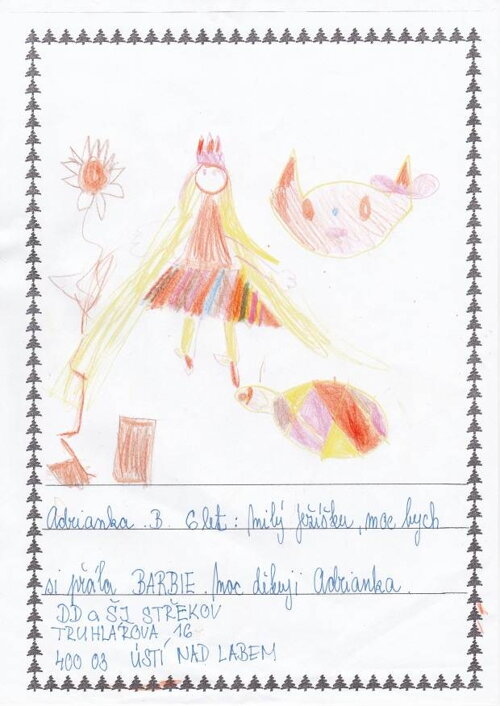 Adrianka. B. 6 let.: Milý Ježíšku, moc bych
si přála BARBIE. Moc děkuji Adrianka.
DD a ŠJ STŘEKOV
TRUHLÁŘOVA, 16
400 03 ÚSTÍ NAD LABEM